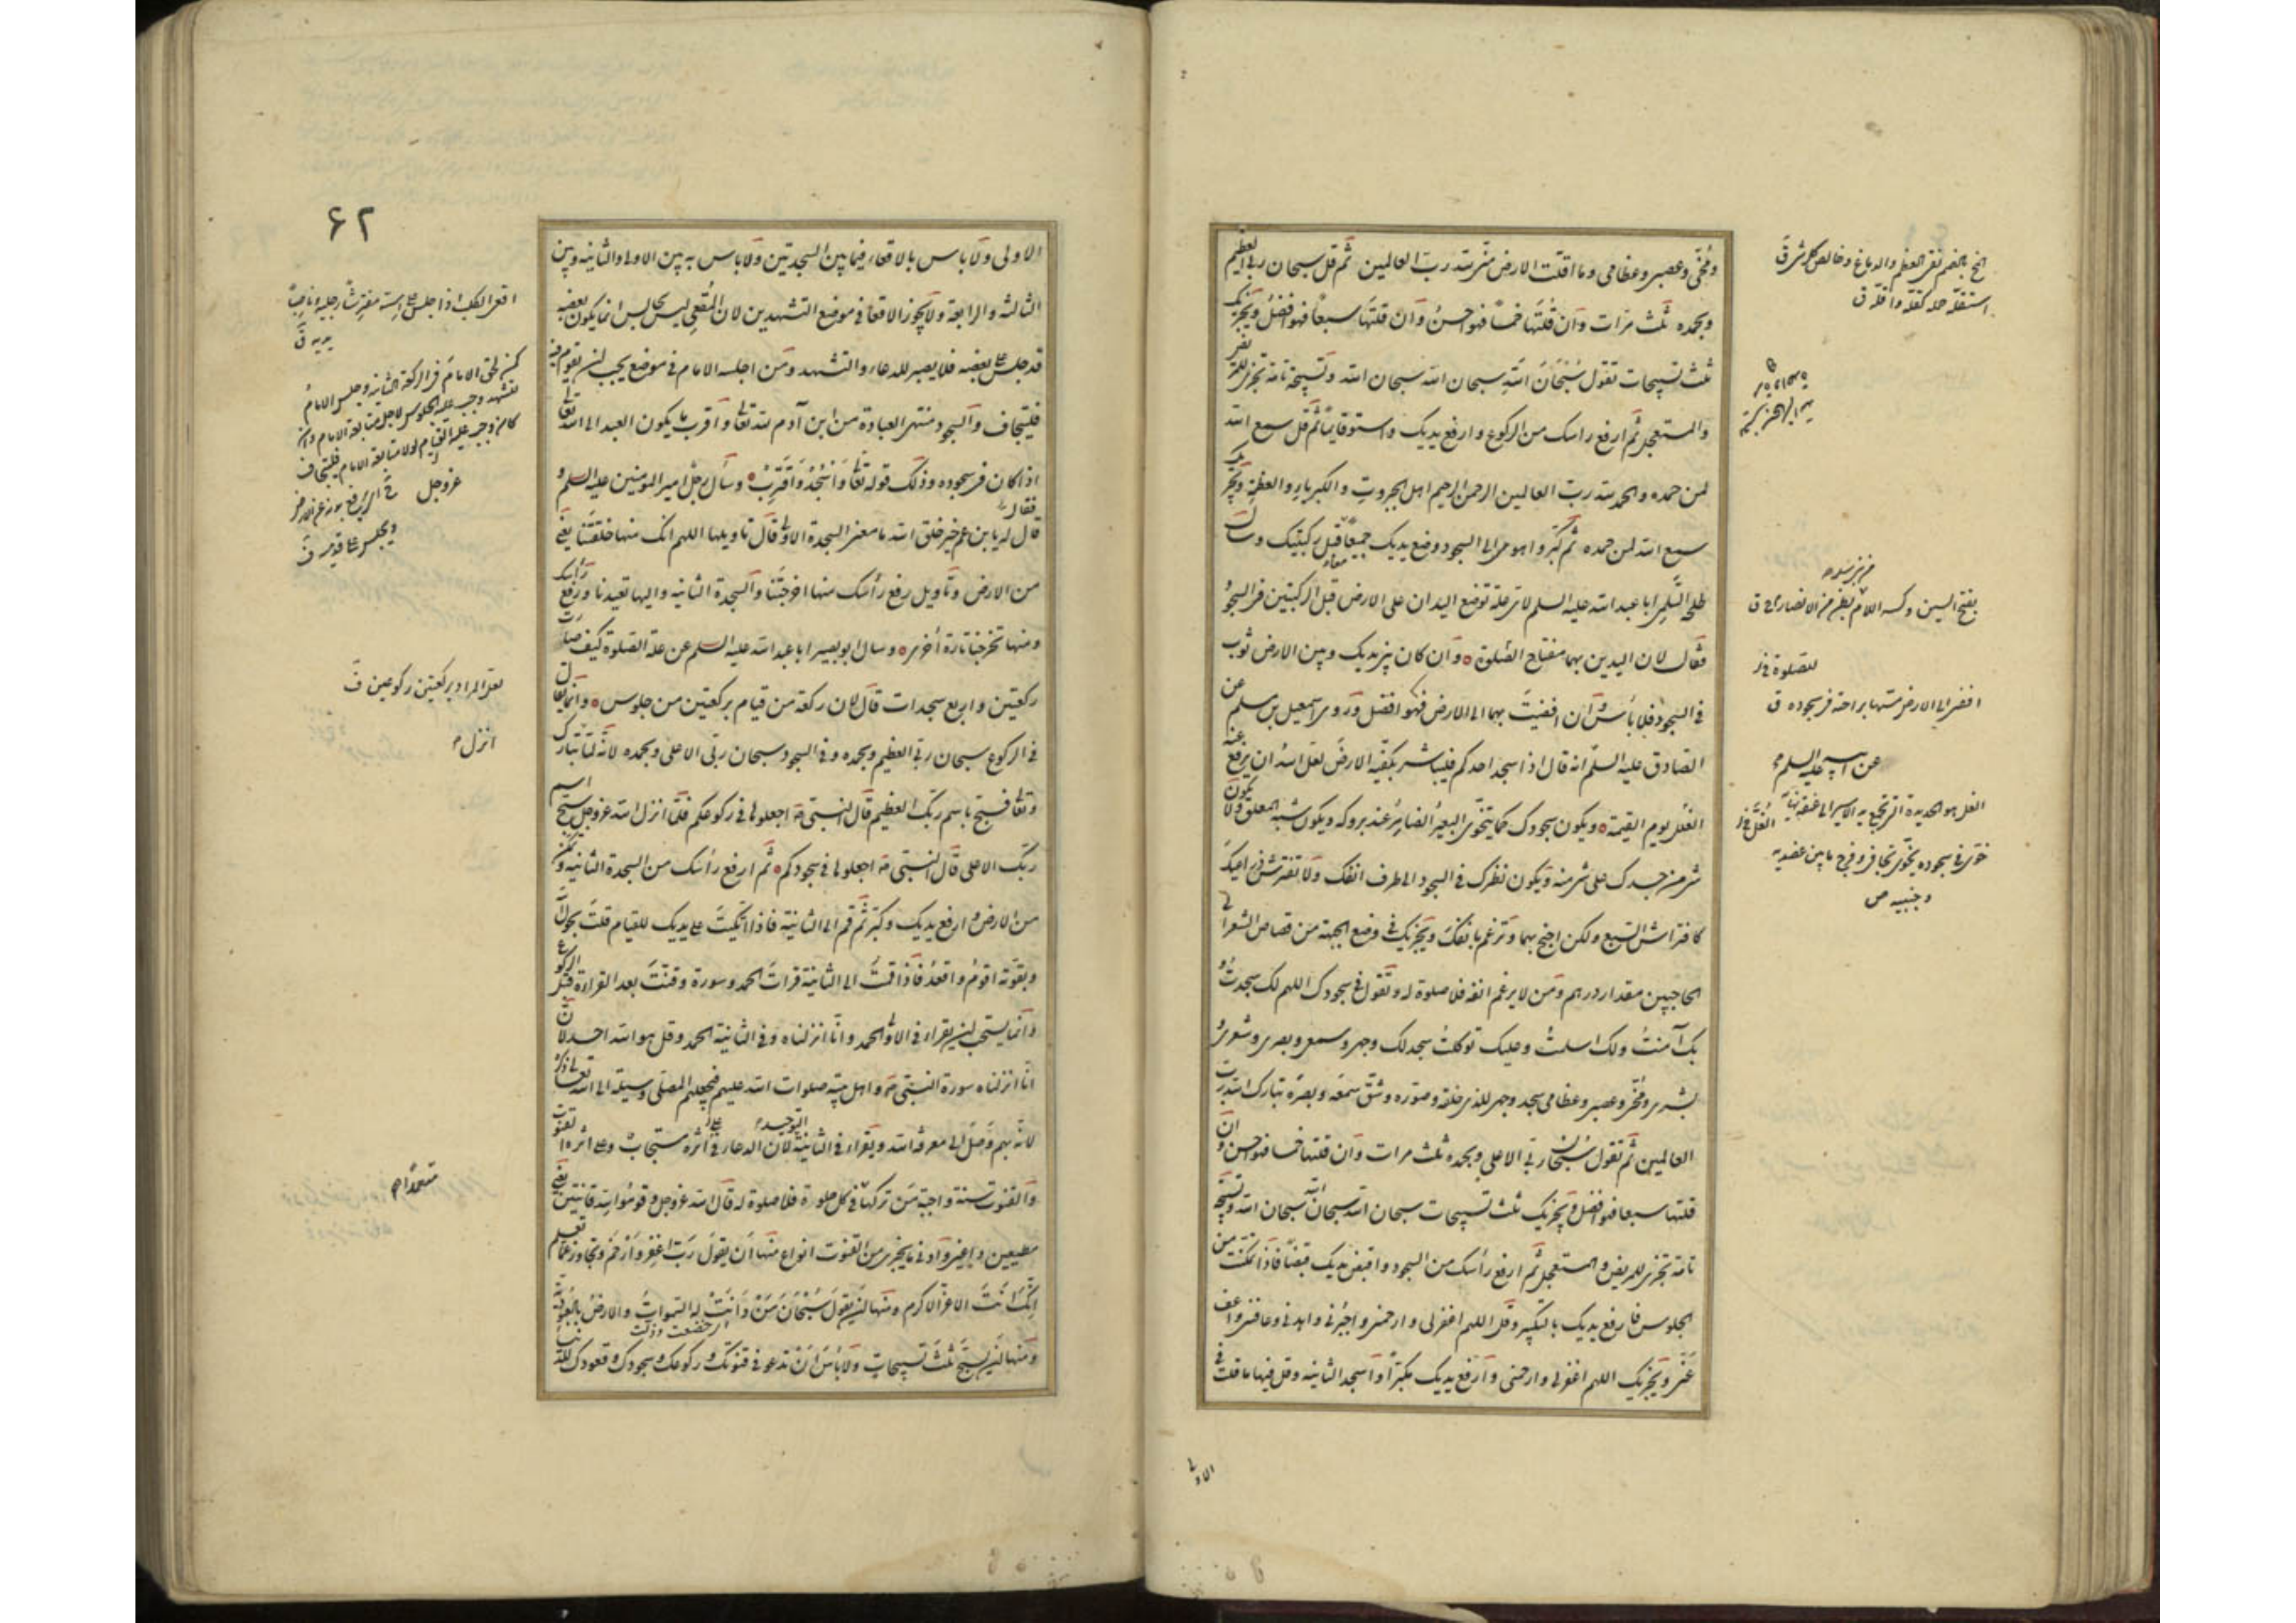 ومخّي وعصبي وعظامي وما اقلّت الارض منّي لله ربّ العالمين ثمّ قل سبحان ربّي العظيم
وبحمده ثلث مرّات وان قلتها خمساً فهو احسن وان قلتها سبعاً فهو افضل ويجزيك
ثلث تسبيحات تقول سبحان الله سبحان الله سبحان الله وتسبيحة تامة تجزي للمريض
والمستعجل ثم ارفع راسك من الركوع وارفع يديك واستو قايماً ثم قل سمع الله
لمن حمده والحمد لله ربّ العالمين الرحمن الرحيم اهل الجبروت والكبرياء والعظمة ويجزيك
سمع الله لمن حمده ثم كبّر واهو الى السجود وضع يديك جميعاً معاً قبل ركبتيك وسأل
طلحة السلمي ابا عبد الله عليه السلم لاي علة توضع اليدان على الارض قبل الركبتين في السجود
فقال لان اليدين بهما مفتاح الصلوة وان كان بين يديك وبين الارض ثوب
في السجود فلا بأس وان افضيت بهما الى الارض فهو افضل وروى اسمعيل بن مسلم عن
الصادق عليه السلم انه قال اذا سجد احدكم فليباشر بكفّيه الارض لعل الله ان يدفع عنه
الغل يوم القيمة ويكون سجودك كما يتخوّى البعير الضامر عند بروكه ويكون شبه المعلق ولا يكون
شيء من جسدك على شيء منه ويكون نظرك في السجود الى طرف انفك ولا تفترش ذراعيك
كافتراش السبع ولكن اجنح بهما وترغم بانفك ويجزيك في وضع الجبهة من قصاص الشعر الى
الحاجبين مقدار درهم ومن لا يرغم انفه فلا صلوة له وتقول في سجودك اللهم لك سجدت و
بك آمنت ولك اسلمت وعليك توكلت سجد لك وجهي وسمعي وبصري وشعري و
بشري ومخّي وعصبي وعظامي سجد وجهي للذي خلقه وصوّره وشقّ سمعه وبصره تبارك الله رب
العالمين ثم تقول سبحان ربّي الاعلى وبحمده ثلث مرات وان قلتها خمسا فهو احسن وان
قلتها سبعا فهو افضل ويجزيك ثلث تسبيحات سبحان الله سبحان الله سبحان الله وتسبيحة
تامة تجزي للمريض والمستعجل ثم ارفع رأسك من السجود واقبض يديك قبضاً فاذا تمكنت من
الجلوس فارفع يديك بالتكبير وقل اللهم اغفر لي وارحمني واجبرني واهدني وعافني واعف
عنّي ويجزيك اللهم اغفر لي وارحمني وارفع يديك مكبّراً واسجد الثانية وقل فيها ما قلت في
الاولى
للصلوة
افضى الى الارض مسّها براحته في سجوده ق
عن ابيه عليه السلم
وجنبيه ص
۶۲
الاولى ولا باس بالاقعاء فيما بين السجدتين ولا باس به بين الاولى والثانية وبين
الثالثة والرابعة ولا يجوز الاقعاء في موضع التشهدين لان المُقعي ليس بجالس انما يكون بعضه
قد جلس على بعضه فلا يصبر للدعاء والتشهد ومن اجلسه الامام في موضع يجب ان يقوم فيه
فليتجاف والسجود منتهى العبادة من ابن آدم لله تعالى واقرب ما يكون العبد الى الله تعالى
اذا كان في سجوده وذلك قوله تعالى واسجد واقترب وسأل رجل امير المؤمنين عليه السلم و
قال له يا بن عم خير خلق الله ما معنى السجدة الاولى فقال قال تاويلها اللهم انك منها خلقتنا يعني
من الارض وتاويل رفع رأسك منها اخرجتنا والسجدة الثانية واليها تعيدنا ورفع رأسك
ومنها تخرجنا تارة اخرى وسال ابو بصير ابا عبد الله عليه السلم عن علة الصلوة كيف صارت
ركعتين واربع سجدات قال لان ركعة من قيام بركعتين من جلوس وانما يقال
في الركوع سبحان ربي العظيم وبحمده وفي السجود سبحان ربي الاعلى وبحمده لانه لما انزل الله تبارك
وتعالى فسبح باسم ربك العظيم قال النبي ص اجعلوها في ركوعكم فلما انزل الله عزوجل سبح اسم
ربك الاعلى قال النبي ص اجعلوها في سجودكم ثم ارفع رأسك من السجدة الثانية وتمكن
من الارض وارفع يديك وكبّر ثم قم الى الثانية فاذا اتكيت على يديك للقيام قلت بحول الله
وبقوته اقوم واقعد فاذا قمت الى الثانية قرات الحمد وسورة وقنتّ بعد القراءة قبل الركوع
وانما يستحب ان يقراء في الاولى الحمد وانا انزلناه وفي الثانية الحمد وقل هو الله احد لان
انا انزلناه سورة النبي ص واهل بيته صلوات الله عليهم فيجعلهم المصلي وسيلة الى الله تعالى ذكره
لانه بهم وصل الى معرفة الله ويقراء في الثانية التوحيد لان الدعاء على اثره مستجاب وعلى اثره القنوت
والقنوت سنة واجبة من تركها في كل صلوة فلا صلوة له قال الله عزوجل وقوموا لله قانتين يعني
مطيعين داعين وادنى ما يجزي من القنوت انواع منها ان يقول ربّ اغفر وارحم وتجاوز عما تعلم
انّك انت الاعز الاكرم ومنها ان يقول سبحان من دانت له السموات والارض بالعبودية
اي خضعت وذلّت
ومنها ان يسبح ثلث تسبيحات ولا بأس ان تدعو في قنوتك وركوعك وسجودك وقعودك للدنيا
كانه وجب عليه القيام لولا متابعة الامام فليتجاف
عزوجل
لعل المراد بركعتين ركوعين ق
انزل
متعمّداً